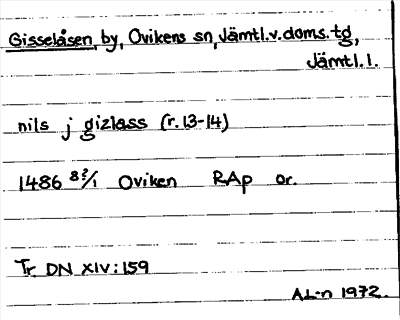 Gisselåsen, by, Ovikens sn, Jämtl.v.doms.tg,
Jämtl.l.
nils j gizlass (r.13-14)
1486 8?/1 Oviken RAp or.
Tr DN XIV:159
AL-n 1972.